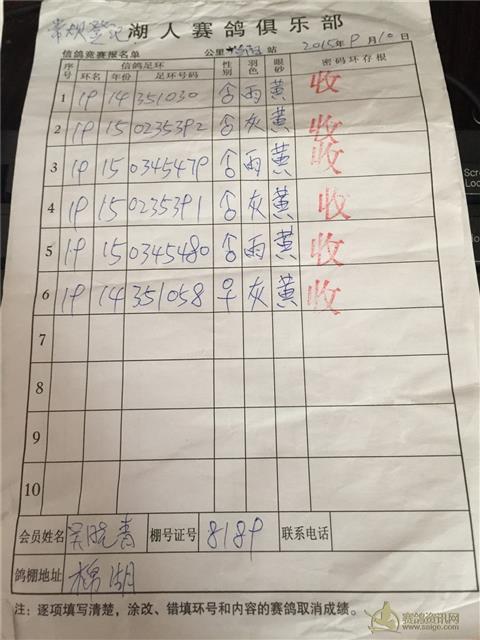 常规登记 湖人赛鸽俱乐部
信鸽竞赛报名单 公里 站 2015年9月10日
序号 信鸽足环 性别 羽色 眼砂 密码环存根
环名 年份 足环号码
1 19 14 351030 雨 黄 收
2 19 15 0235392 灰 黄 收
3 19 15 0345479 雨 黄 收
4 19 15 0235391 灰 黄 收
5 19 15 0345480 雨 黄 收
6 19 14 351058 灰 黄 收
7
8
9
10
会员姓名 吴晓青 棚号证号 8189 联系电话
鸽棚地址 棉湖
注：逐项填写清楚，涂改、错填环号和内容的赛鸽取消成绩。
赛鸽资讯网
www.saige.com